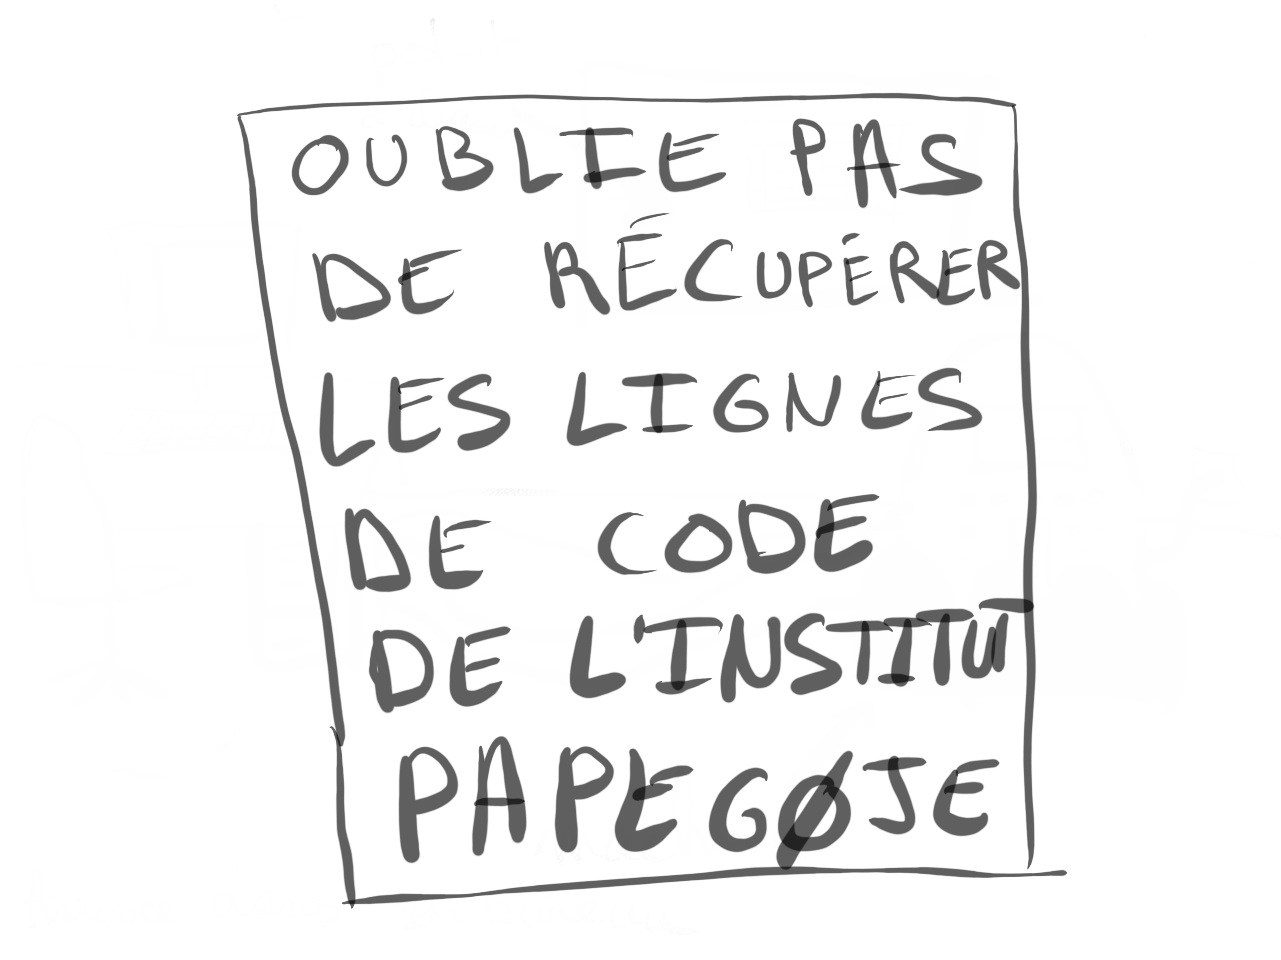 OUBLIE PAS
DE RÉCUPÉRER
LES LIGNES
DE CODE
DE L'INSTITUT
PAPEGØJE